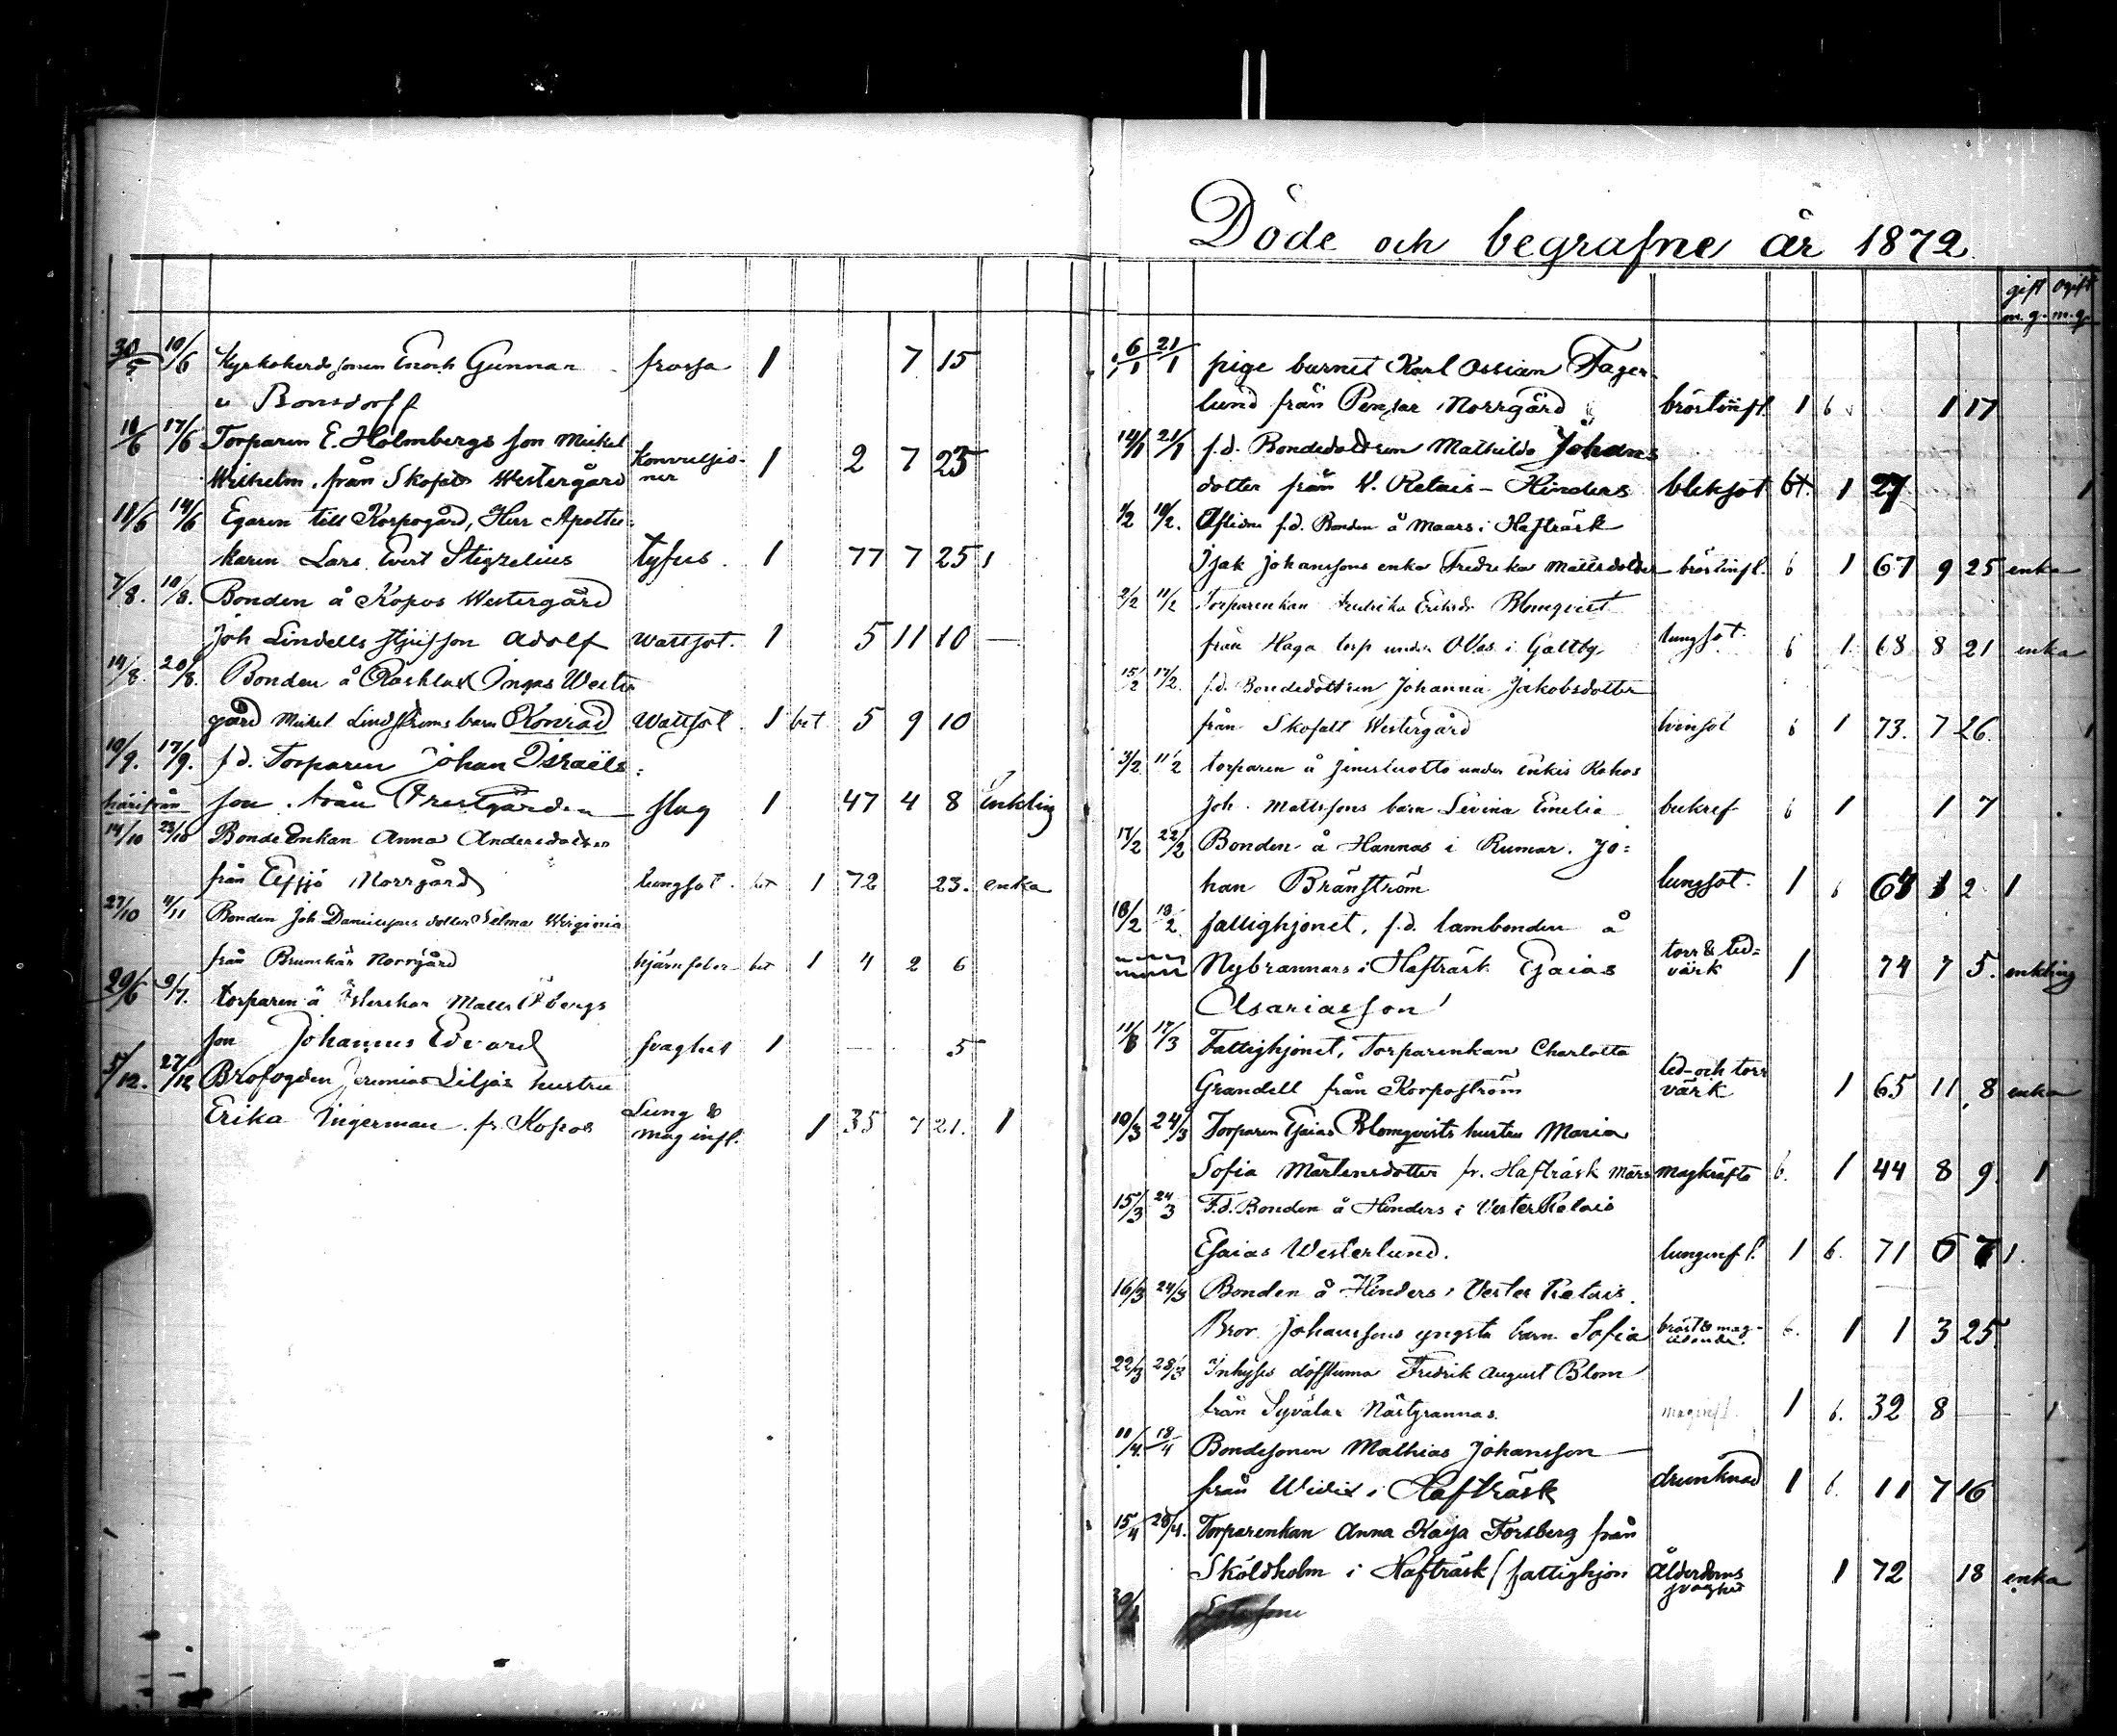 30/5 10/6 Kyrkoherdssonen Enoch Gunnar frossa 1 7 15
u Bonsdorff
11/6 17/6 Torparen E. Holmbergs son Mickel
Wilhelm. från Skofalt Westergård Konvulsio-ner 1 2 7 23
11/6 14/6 Egaren till Korpogård, Herr Apothe
karen Lars Evert Stigzelius tyfus. 1 77 7 25 1
7/8. 10/8. Bonden å Kopos Westergård
Joh Lindells stjufson Adolf Wattsot. 1 5 11 10 —
14/8. 20/8. Bonden å Westr
gård Mickel Lindströms barn Konrad Wattsot 1 bet 5 9 10
10/9. 17/9. f.d. Torparen Johan Israëls:
härifrån son. från Prestgården slag 1 47 4 8 Enkling
14/10 23/10 BondeEnkan Anna Andersdotter
från Elfsjö Norrgård lungsot. bet 1 72 23. enka
27/10 4/11 Bonden Joh Danielssons dotter Selma Wirginia
från Brunskär Norrgård hjärnfeber bet 1 4 2 6
29/6 9/7. torparen å Österskär Matts Öbergs
son Johannes Edvard svaghet 1 — 5
5/12. 27/12 Brofogden Jeremias Liljas hustru
Erika Ingerman. fr. Kopos Lung & mag infl. 1 35 7 21. 1
Döde och begrafne år 1872
gift ogift
m. q. m. q.
6/1 21/1 pige barnet Karl Ossian Fager-
lund från Pensar Norrgård bröstinfl. 1 b 1 17
14/1 21/1 f.d. Bondedottren Mathilda Johans
dotter från V. Retais - Hinders bleksot bt. 1 27 1
1/2 10/2. Aflidne f.d. Bonden å Maars i Hafträsk
Isak Johanssons enka Fredrika Mattsdotter bröstinfl. b 1 67 9 25 enka
2/2 11/2 Torparenkan Fredrika Eriksdr Blomqvist
från Haga torp under i Galtby lungsot. b 1 68 8 21 enka
15/2 17/2. f.d. Bondedottren Johanna Jakobsdotter
från Skofalt Westergård tvinsot b 1 73. 7 26. 1
3/2 11/2 torparen å under Kokos
Joh. Mattssons barn Levina Emelia b 1 1 7
17/2 22/2 Bonden å Hannas i Rumar. Jo:
han Bränström lungsot. 1 b 1 2 1
18/2 fattighjonet, f.d. lambonden å
Nybrannars i Hafträsk Esaias torr & led=värk 1 74 7 5. enkling
Asariasson
17/3 Fattighjonet, Torparenkan Charlotta
Grandell från Korpoström led-och torr värk 1 65 11 8 enka
10/3 24/3 Torparen Esaias Blomqvists hustru Maria
Sofia Mårtensdotter fr. Hafträsk Mars magkräfta b. 1 44 8 9. 1
15/3 24/3 F.d. Bonden å Hinders i Vester Retais
Esaias Westerlund. lunginfl. 1 b. 71 1.
16/3 24/3 Bonden å Hinders i Vester Retais.
Bror Johanssons yngsta barn Sofia bröst & mag- b. 1 1 3 25
22/3 28/3 Inhyses döfstumma Fredrik August Blom
från Syvälax Nästgrannas. maginfl. 1 b. 32 8 — 1
11/4. 18/4 Bondesonen Mathias Johansson
från i Hafträsk drunknad 1 b. 11 7 16
15/4 28/4. Torparenkan Anna Kaija Forsberg från
Sköldholm i Hafträsk / fattighjon Ålderdoms svaghet 1 72 18 enka